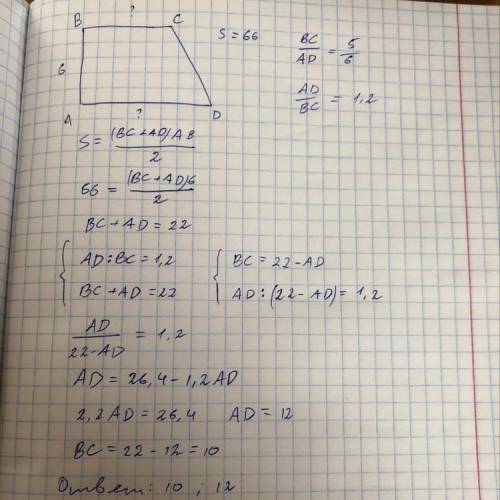 ?
B C
S = 66
BC/AD = 5/6
6
AD/BC = 1,2
A ? D
S = (BC + AD) AB / 2
66 = (BC + AD) 6 / 2
BC + AD = 22
{ AD : BC = 1,2
BC + AD = 22
{ BC = 22 - AD
AD : (22 - AD) = 1,2
AD / 22 - AD = 1,2
AD = 26,4 - 1,2 AD
2,2 AD = 26,4 AD = 12
BC = 22 - 12 = 10
Ответ: 10 ; 12